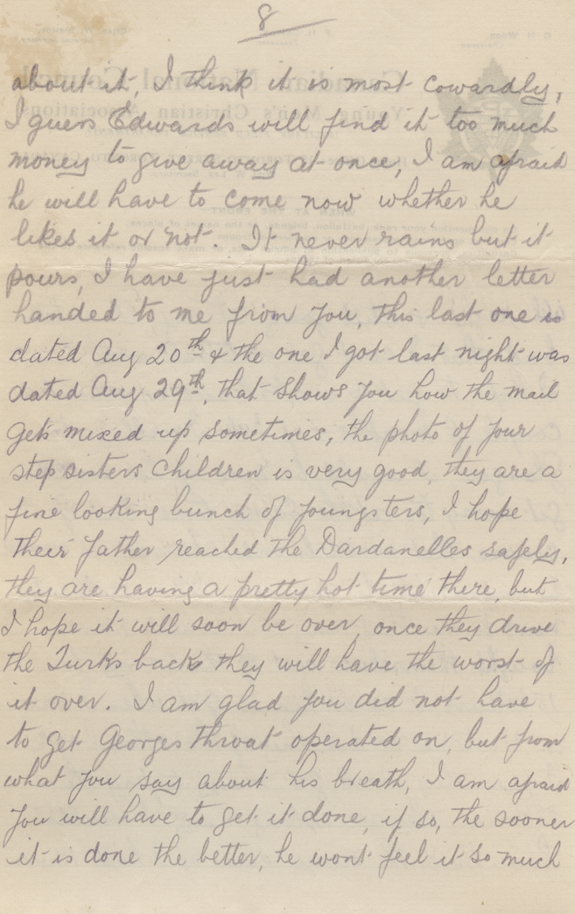 8
about it, I think it is most cowardly,
I guess Edwards will find it too much
money to give away at once, I am afraid
he will have to come now whether he
likes it or not. It never rains but it
pours, I have just had another letter
handed to me from you, this last one is
dated Aug 20th & the one I got last night was
dated Aug 29th, that shows you how the mail
gets mixed up sometimes, the photo of your
step sisters children is very good, they are a
fine looking bunch of youngsters, I hope
their father reached the Dardanelles safely,
they are having a pretty hot time there, but
I hope it will soon be over, once they drive
the Turks back they will have the worst of
it over. I am glad you did not have
to get Georges throat operated on, but from
what you say about his breath, I am afraid
you will have to get it done, if so, the sooner
it is done the better, he wont feel it so much